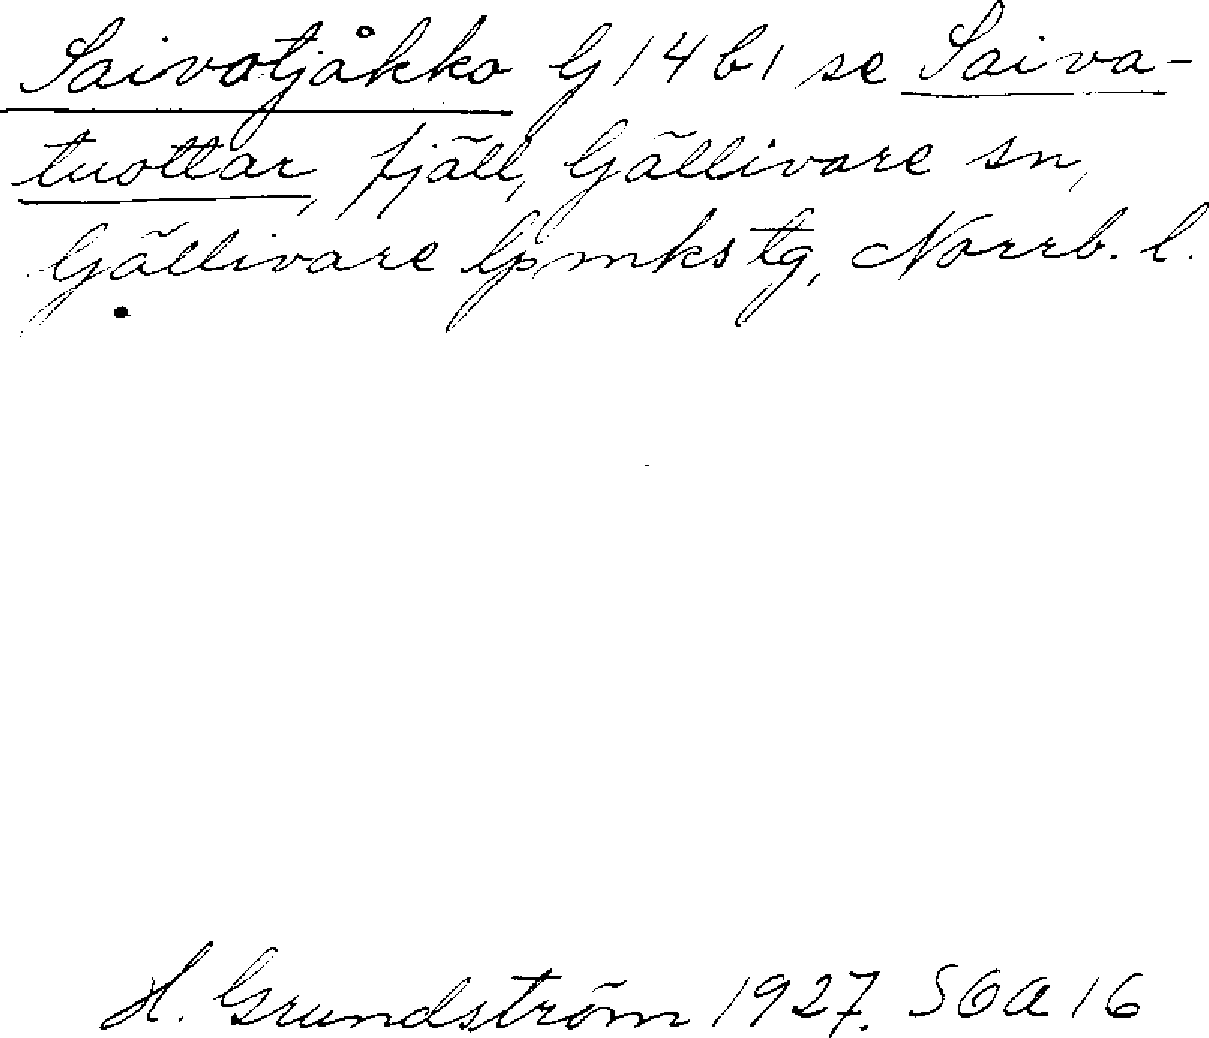 Saivotjåkko G 14 b1 se Saiva-
tuottar, fjäll, Gällivare sn,
Gällivare lpmkstg, Norrb. l.
H. Grundström 1927. SOA 16